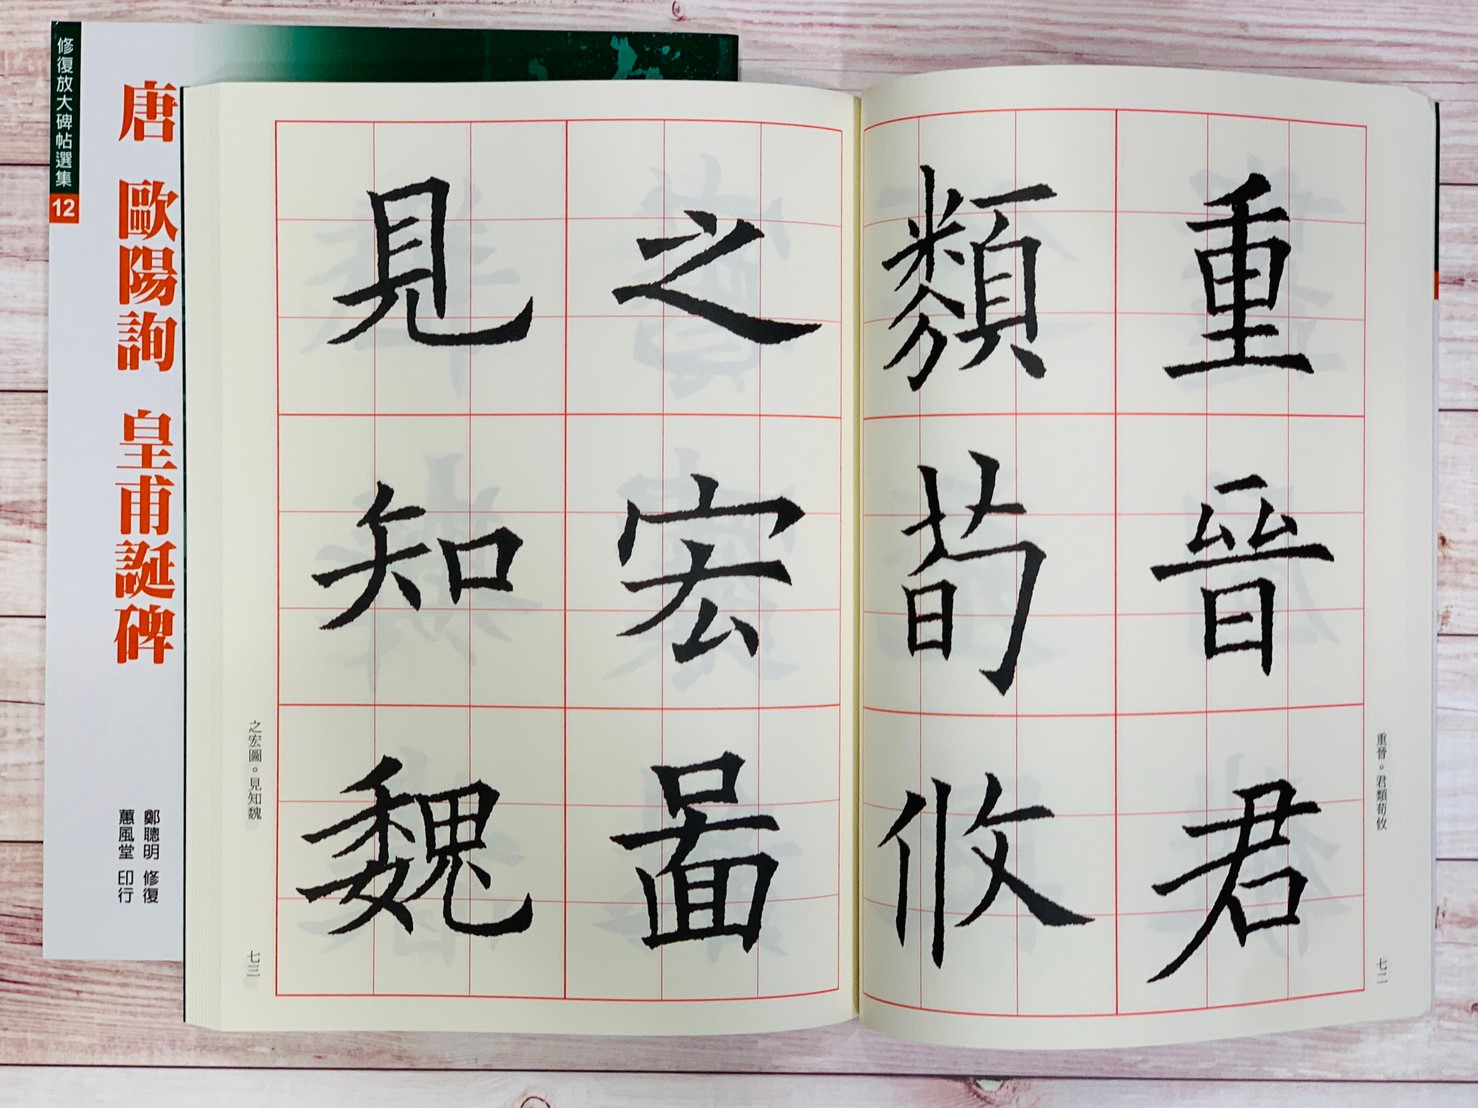 修復放大碑帖選集
12
唐 歐陽詢 皇甫誕碑
鄭聰明 修復
蕙風堂 印行
重晉君
類荀攸
重晉。君類荀攸
七二
之宏圖
見知魏
之宏圖。見知魏
七三